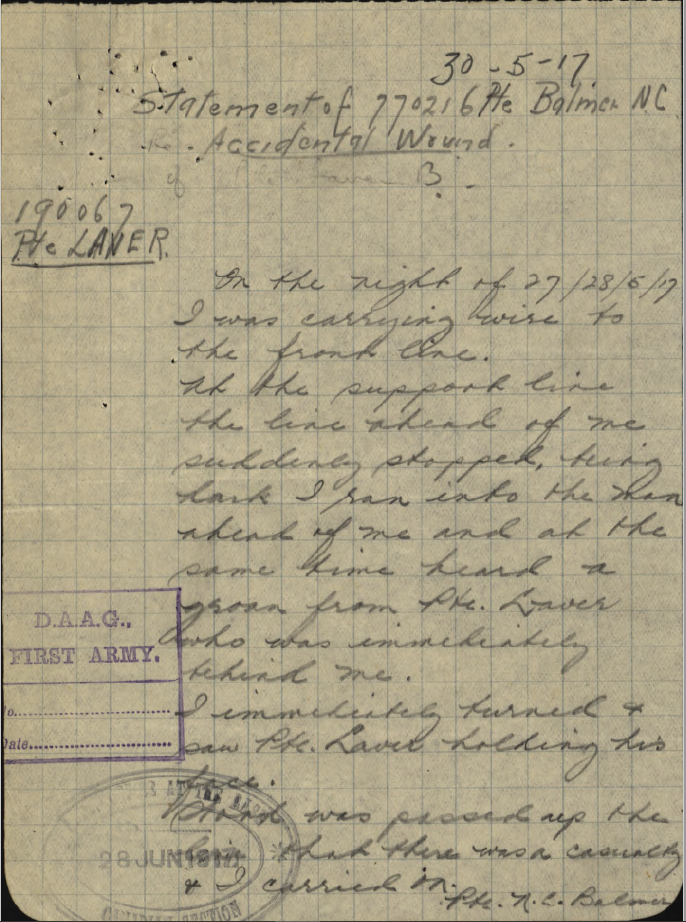 30-5-17
Statement of 770216 Pte Balmer N C
Re - Accidental Wound.
of Pte. Laver B.
190067
Pte LAVER.
On the night of 27/28/5/17
I was carrying wire to
the front line.
At the support line
the line ahead of me
suddenly stopped, being
dark I ran into the man
ahead of me and at the
same time heard a
groan from Pte. Laver
who was immediately
behind me.
I immediately turned &
saw Pte. Laver holding his
face.
Word was passed up the
line that there was a casualty
& I carried on.
Pte. N. C. Balmer
D.A.A.G.,
FIRST ARMY.
No.
Date
AT THE BASE
28 JUN 1917
CANADIAN SECTION